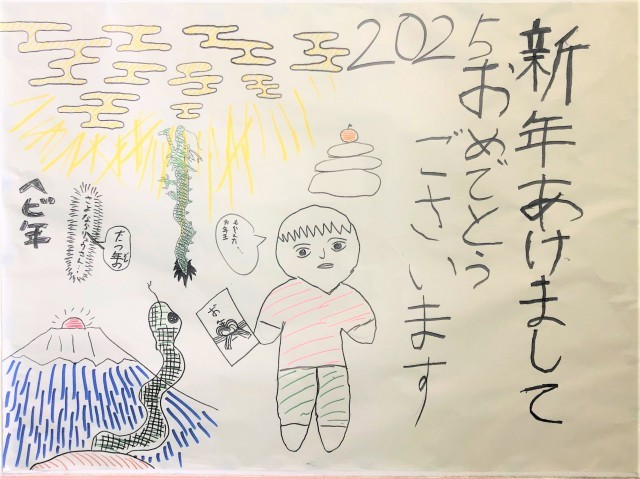 新年あけまして
2025
おめでとう
ございます
ヘビ年
たつ年の
もらった…
お年玉